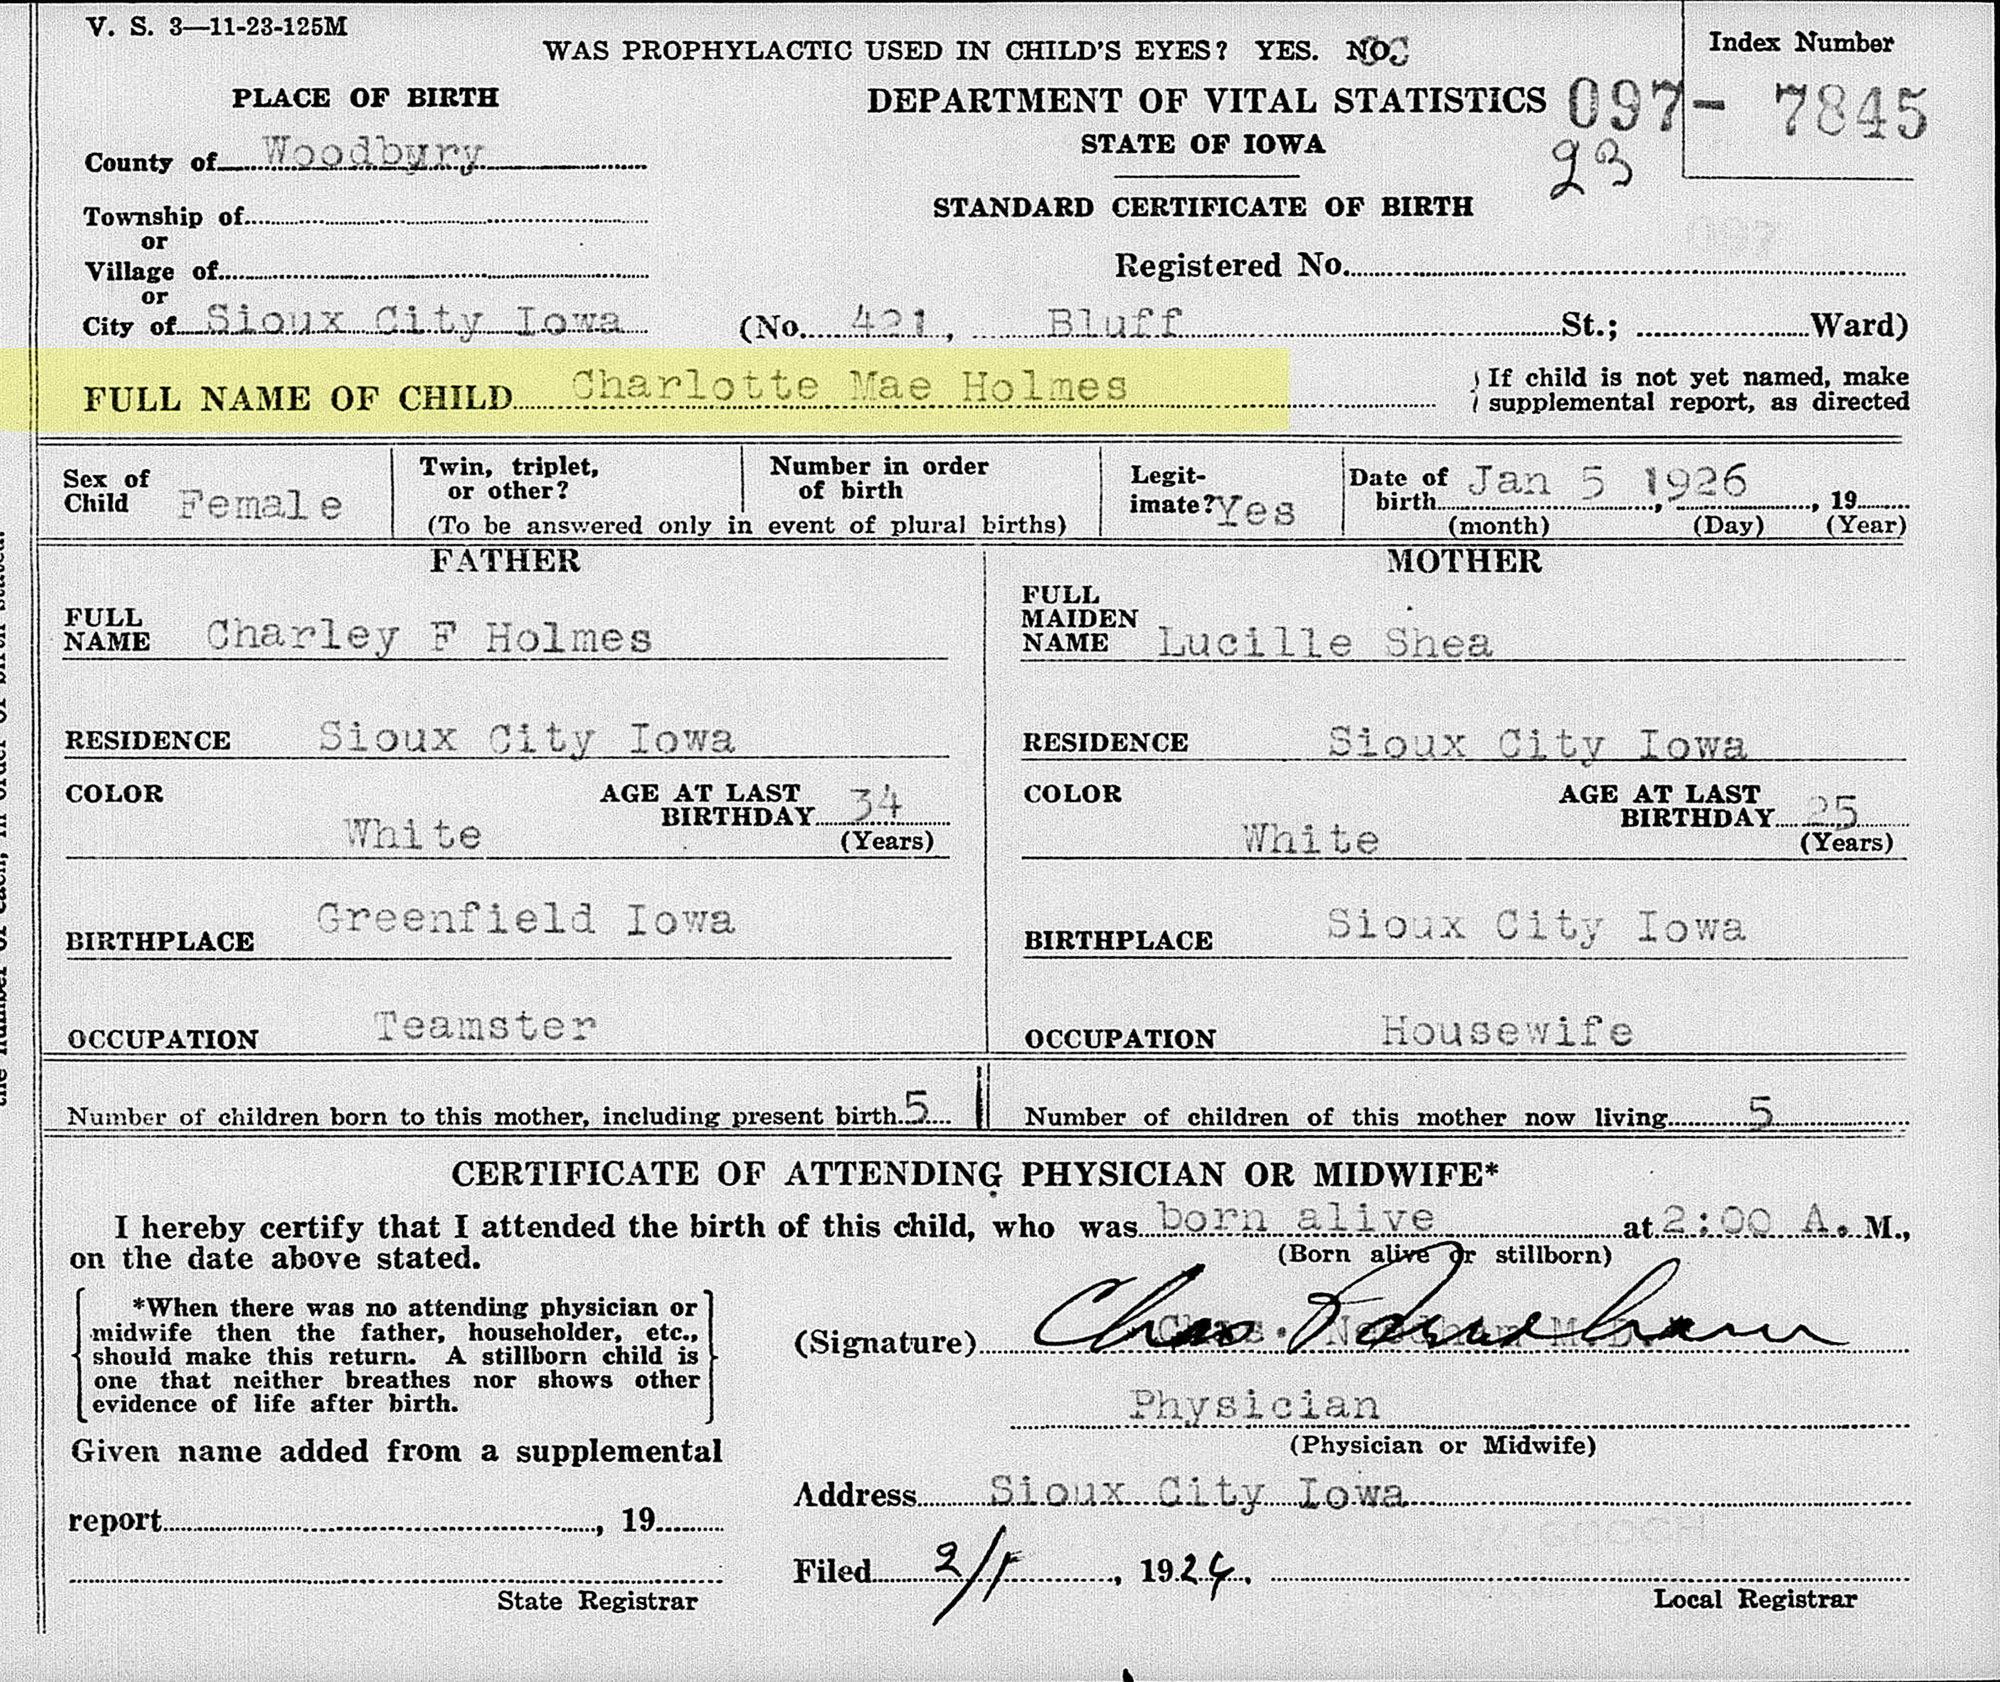 V. S. 3—11-23-125M
WAS PROPHYLACTIC USED IN CHILD'S EYES? YES. NO.
Index Number
PLACE OF BIRTH
DEPARTMENT OF VITAL STATISTICS
097- 7845
STATE OF IOWA
23
County of Woodbury
STANDARD CERTIFICATE OF BIRTH
Township of
or
097
Village of
Registered No.
or
City of Sioux City Iowa (No. 421, Bluff St.; Ward)
FULL NAME OF CHILD Charlotte Mae Holmes
If child is not yet named, make
supplemental report, as directed
Sex of
Child Female
Twin, triplet,
or other?
Number in order
of birth
(To be answered only in event of plural births)
Legit-
imate? Yes
Date of
birth Jan 5 1926, 19
(month) (Day) (Year)
FATHER
FULL
NAME Charley F Holmes
RESIDENCE Sioux City Iowa
COLOR White
AGE AT LAST
BIRTHDAY 34
(Years)
BIRTHPLACE Greenfield Iowa
OCCUPATION Teamster
MOTHER
FULL
MAIDEN
NAME Lucille Shea
RESIDENCE Sioux City Iowa
COLOR White
AGE AT LAST
BIRTHDAY 25
(Years)
BIRTHPLACE Sioux City Iowa
OCCUPATION Housewife
Number of children born to this mother, including present birth 5
Number of children of this mother now living 5
CERTIFICATE OF ATTENDING PHYSICIAN OR MIDWIFE*
I hereby certify that I attended the birth of this child, who was born alive at 2:00 A. M.,
(Born alive or stillborn)
on the date above stated.
*When there was no attending physician or
midwife then the father, householder, etc.,
should make this return. A stillborn child is
one that neither breathes nor shows other
evidence of life after birth.
(Signature) Chas. Needham M.D.
Physician
(Physician or Midwife)
Given name added from a supplemental
report, 19
State Registrar
Address Sioux City Iowa
Filed 2/1, 1926,
Local Registrar